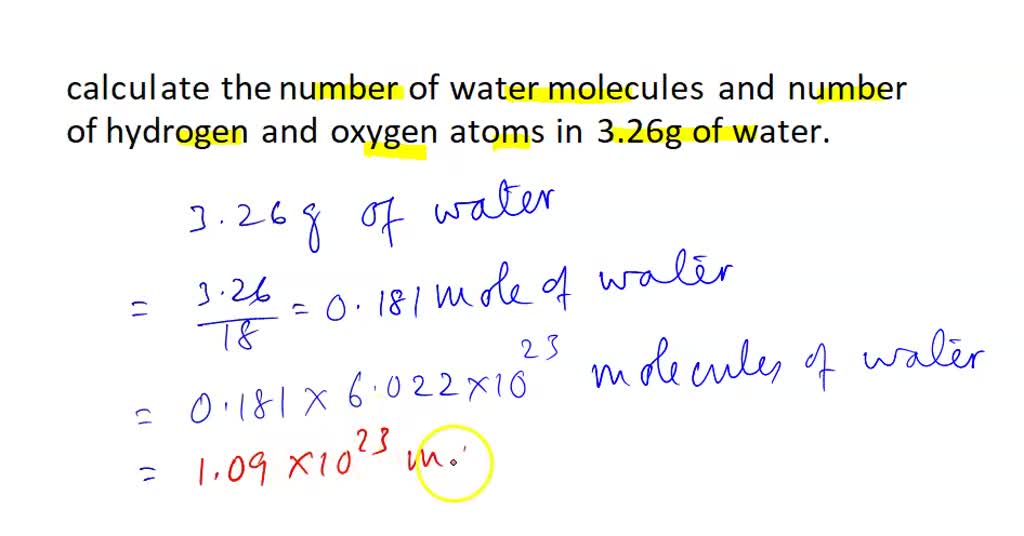 calculate the number of water molecules and number
of hydrogen and oxygen atoms in 3.26g of water.
3.26g of water
= 3.26/18 = 0.181 mole of water
= 0.181 × 6.022 × 10²³ molecules of water
= 1.09 × 10²³ m